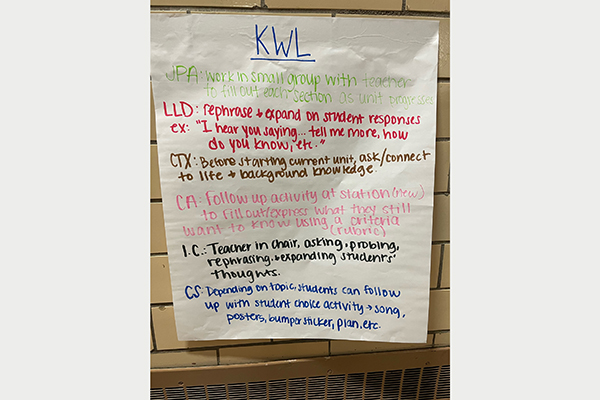 KWL
JPA: work in small group with teacher
to fill out each section as unit progresses
LLD: rephrase + expand on student responses
ex: "I hear you saying... tell me more, how
do you know, etc."
CTX: Before starting current unit, ask/connect
to life + background knowledge.
CA: Follow up activity at station (new)
to fill out/express what they still
want to know using a criteria
(rubric)
I.C.: Teacher in chair, asking, probing,
rephrasing + expanding students'
thoughts.
CS: Depending on topic, students can follow
up with student choice activity → song,
posters, bumper sticker, plan, etc.